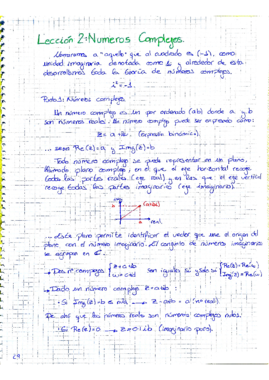 Lección 2: Numeros Complejos.
Llamaremos a "aquello" que al cuadrado es (-1), como
unidad imaginaria denotada como i y alrededor de esta
desarrollamos toda la teoría de números complejos
i² = -1.
Parte 1: Números complejos
Un número complejo es un par ordenado (a,b) donde a y b
son números reales. Un número complejo puede ser expresado como:
z = a + bi. (expresión binómica).
... siendo Re(z) = a y Img(z) = b
Todo número complejo se puede representar en un plano,
llamado plano complejo, en el que el eje horizontal recoge
todas las partes reales (eje real), y en las que el eje vertical
recoge todas las partes imaginarias (eje imaginario).
imag
(a+bi)
real
... este plano permite identificar el vector que une el origen del
plano con el número imaginario. El conjunto de números imaginarios
se agrupan en ℂ.
→ Dos nº complejos { z = a+bi
w = c+di
son iguales si y solo si { Re(z) = Re(w)
Img(z) = Re(w)
→ Dado un número complejo z = a+bi:
· Si Img(z) = b es nula → z = a+0i = a (nº real).
De ahí que los números reales son números complejos nulos.
· Si Re(z) = 0 → z = 0 + ib (imaginario puro).